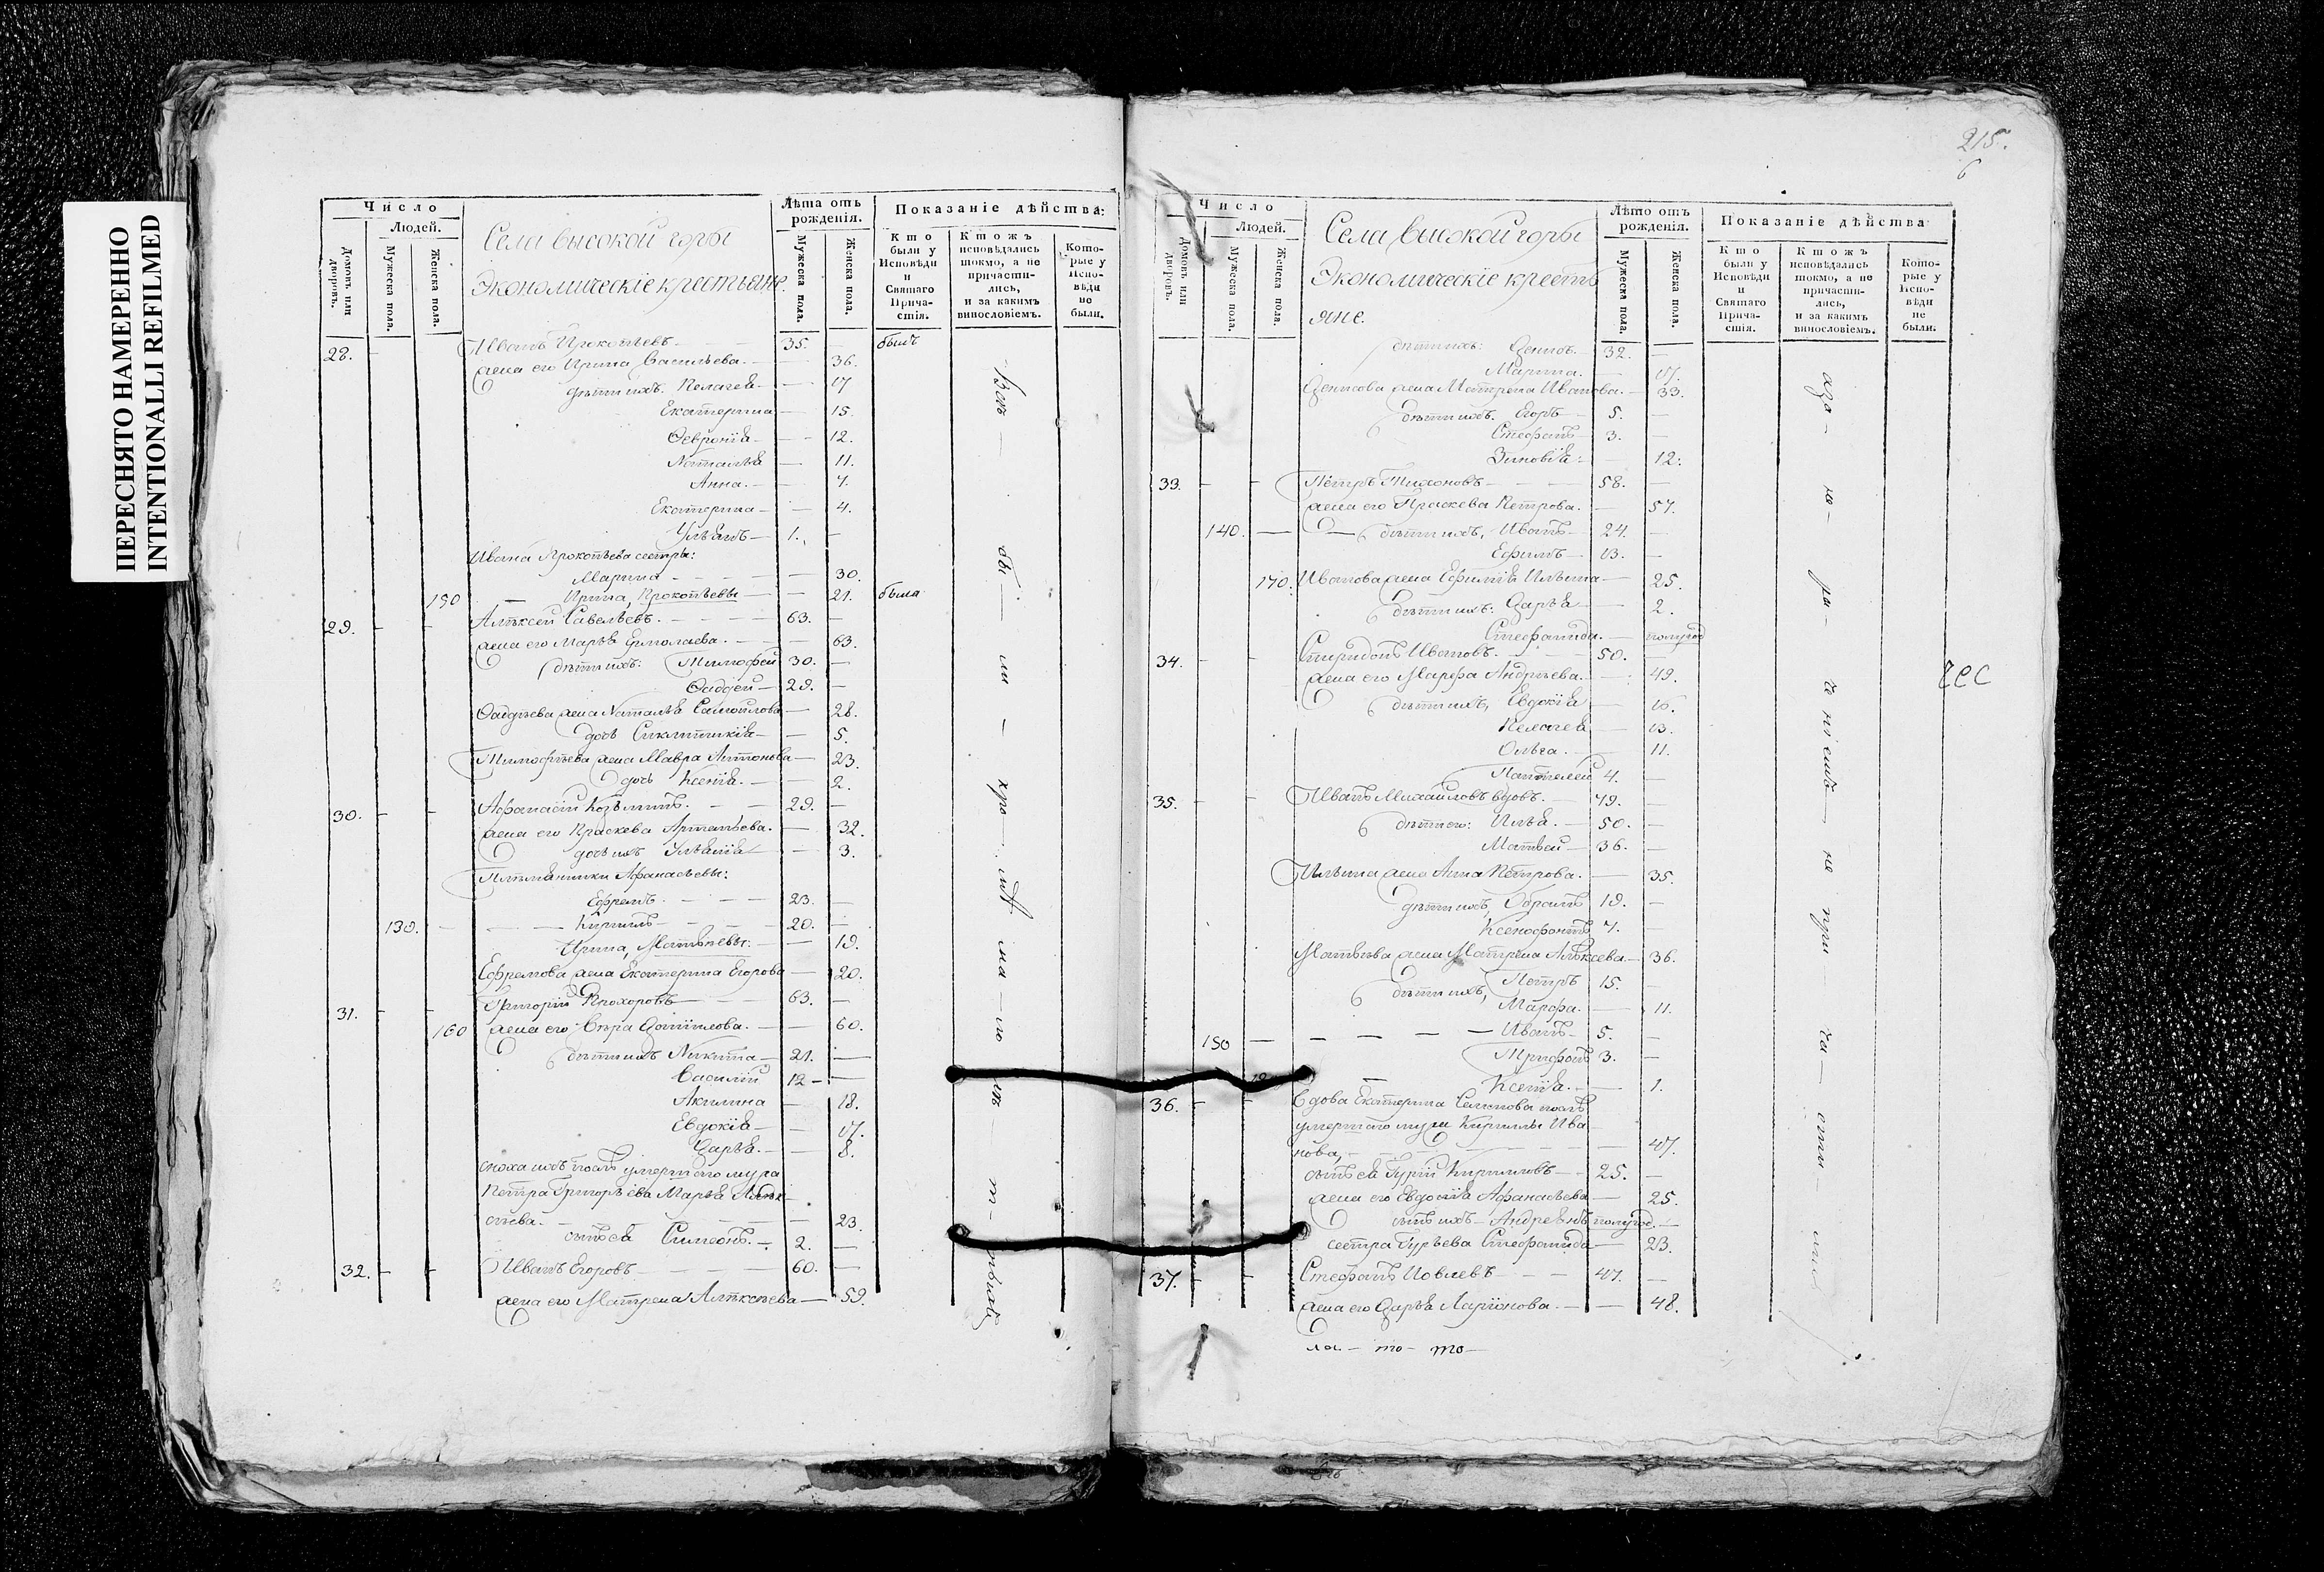 ПЕРЕСНЯТО НАМЕРЕННО
INTENTIONALLI REFILMED
Число
Людей.
Домовъ или дворовъ.
Мужеска пола.
Женска пола.
Села высокой горы
Экономическіе крестьяне.
Лѣта отъ рожденія.
Мужеска пола.
Женска пола.
Показаніе дѣйства:
Кто были у Исповѣди и Святаго Причастія.
Ктожъ исповѣдались токмо, а не причастились, и за какимъ винословіемъ.
Которые у Исповѣди не были.
28. Иванъ Прокопьевъ 35. былъ
жена его Ирина Васильева. 36.
дѣти ихъ. Пелагея 17
Екатерина 15.
Ѳевронія 12.
Наталья 11.
Анна. 7.
Екатерина 4.
Ульянъ 1.
Ивана Прокопьева сестры:
Марина 30.
150 Ирина, Прокопьевы 21. была
29. Алѣксей Савельевъ. 63.
жена его Марья Ермолаева. 63.
дѣти ихъ: Тимофей 30.
Ѳаддей 29.
Ѳаддѣева жена Наталья Самойлова 28.
дочь 5.
Тимофѣева жена Мавра Антонова 23.
дочь Ксенія. 2.
30. Афанасій Козьминъ. 29.
жена его Праскева Артемьева. 32.
дочь ихъ Ульянія 3.
Племянники Афанасьевы:
Ефремъ. 23.
130. Кирилъ 20.
Ирина, Матвѣевы: 19.
Ефремова жена Екатерина Егорова 20.
31. Григорій Прохоровъ 63.
160 жена его Вѣра Данилова. 60.
дѣти ихъ Никита 21.
Василій 12
Акилина 18.
Евдокія 17.
Дарья. 8.
сноха ихъ послѣ умершаго мужа
Петра Григорьева Марья Алѣк
сѣева. 23.
сынъ ея Симеонъ. 2.
32. Иванъ Егоровъ 60.
жена его Матрена Алѣксѣева 59.
215.
6
Число
Людей.
Домовъ или дворовъ.
Мужеска пола.
Женска пола.
Села высокой горы
Экономическіе крестья
яне.
Лѣто отъ рожденія.
Мужеска пола.
Женска пола.
Показаніе дѣйства
Кто были у Исповѣди и Святаго Причастія.
Ктожъ исповѣдались токмо, а не причастились, и за какимъ винословіемъ.
Которые у Исповѣди не были.
дѣти ихъ: Денисъ 32.
Марина. 17.
Денисова жена Матрена Иванова. 33.
дѣти ихъ. Егоръ 5.
Стефанъ 3.
Зиновія: 12.
33. Петръ Тихоновъ 58.
жена его Праскева Петрова. 57.
140. дѣти ихъ, Иванъ 24.
Ефимъ 13.
170. Иванова жена Ефимія Ильина 25.
дѣти ихъ: Дарья 2.
Стефанида. полугод
34. Спиридонъ Ивановъ. 50.
жена его Марфа Андрѣева. 49.
дѣти ихъ, Евдокія 16.
Пелагея 13.
Ольга. 11.
Пантелей 4.
35. Иванъ Михайловъ вдовъ. 79.
дѣти его: Илья. 50.
Матвей 36.
Ильина жена Анна Петрова. 35.
дѣти ихъ, 19.
Ксенофонтъ 7.
Матвѣева жена Матрена Алѣксева 36.
дѣти ихъ, Петръ 15.
Марфа. 11.
150 Иванъ 5.
Трифонъ 3.
Ксенія. 1.
36. Вдова Екатерина Семенова послѣ
умершаго мужа Кирилы Ива
нова, 47.
сынъ ея Гурій Кириловъ 25.
жена его Евдокія Афанасьева 25.
сынъ ихъ Андреянъ полугод.
сестра Гурьева Стефанида 23.
37. Стефанъ Иовлевъ 47.
жена его Дарья Ларіонова. 48.